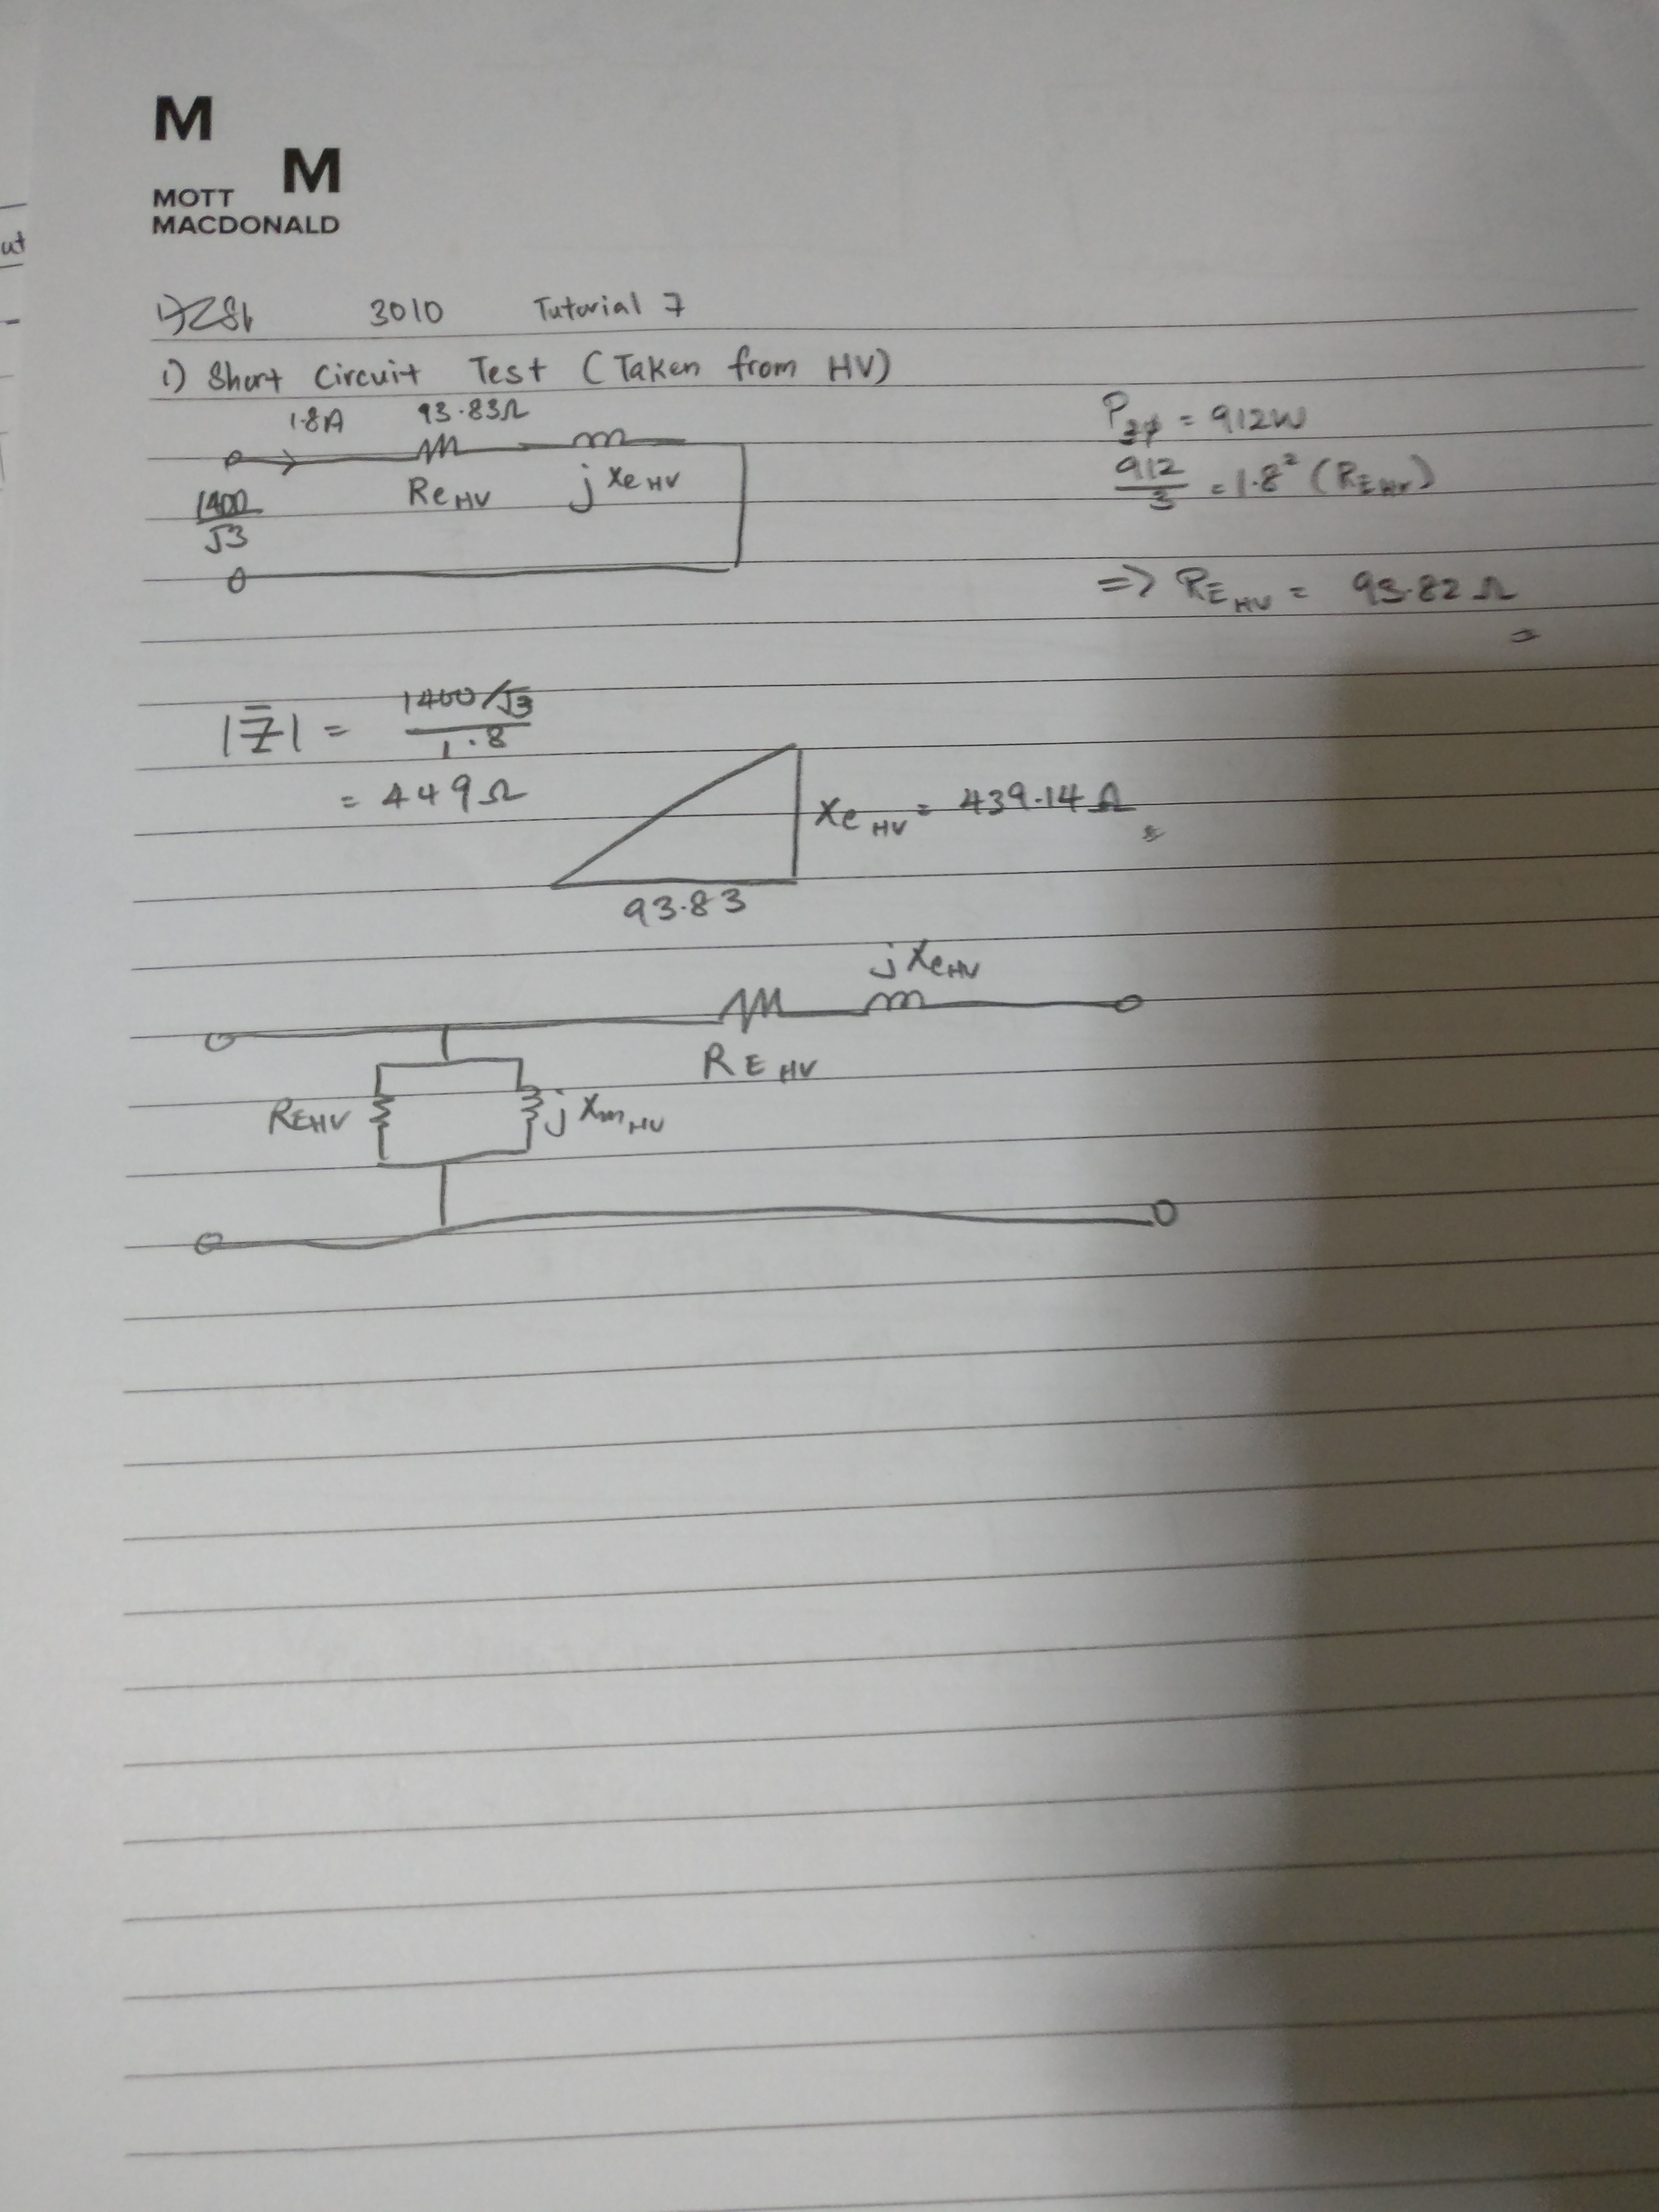 M
M
MOTT
MACDONALD
ut
3010 Tutorial 7
1) Short Circuit Test (Taken from HV)
1.8A 93.83Ω
P3φ = 912W
1400/√3
ReHV jXeHV
912/3 = 1.8² (REHV)
=> REHV = 93.82 Ω
|Z̄| = 1400/√3 / 1.8
= 449Ω
XeHV = 439.14 Ω
93.83
jXeHV
REHV
REHV jXmHV